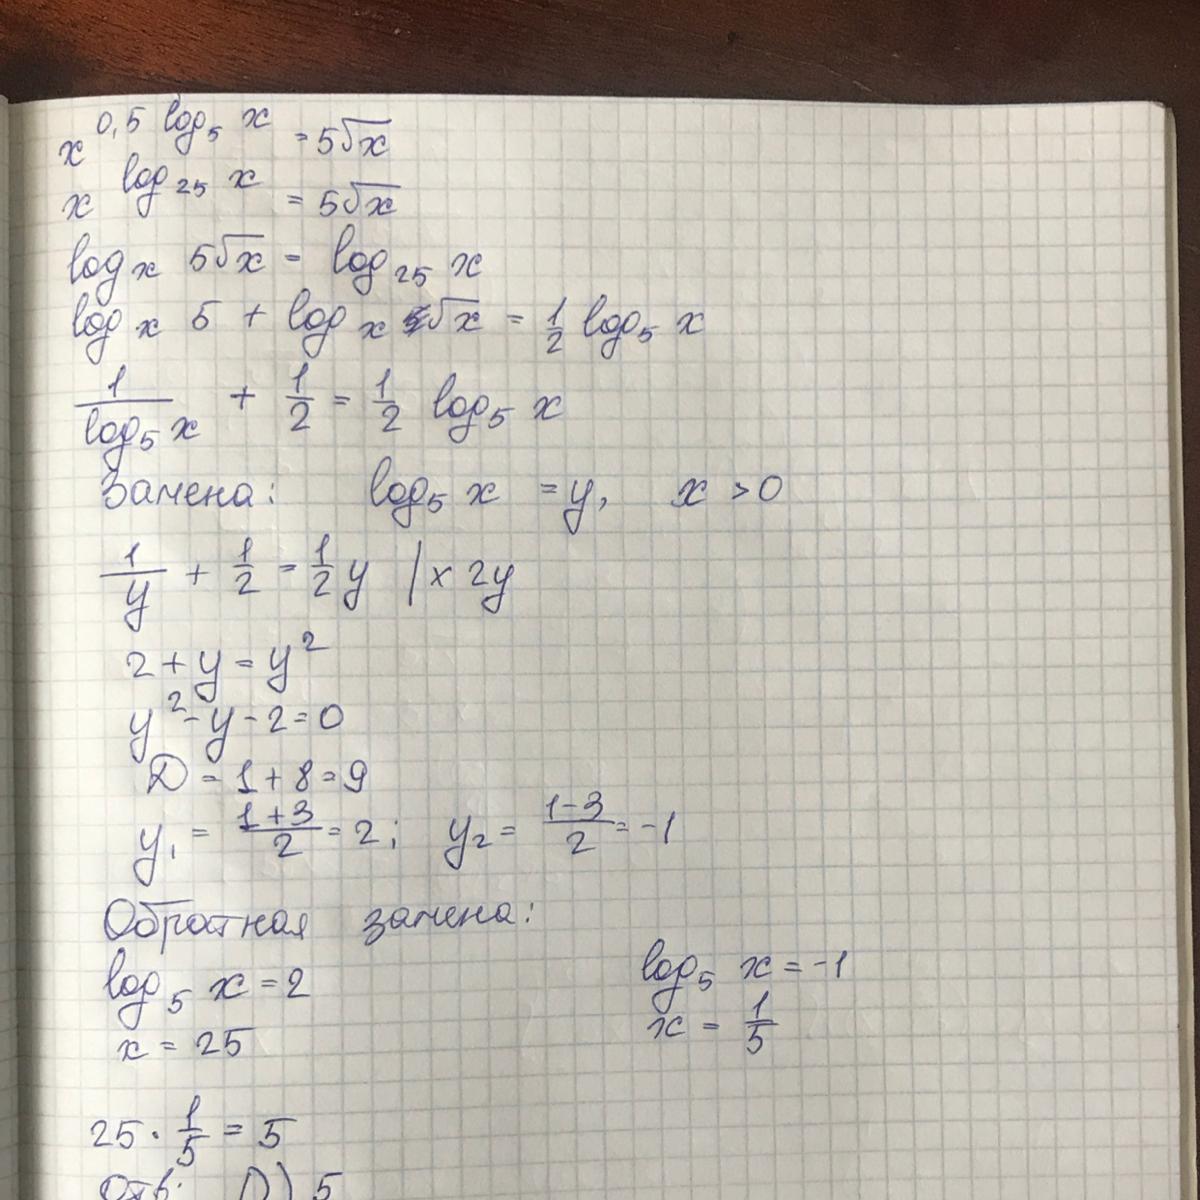 x^{0,5 log_5 x} = 5√x
x^{log_{25} x} = 5√x
log_x 5√x = log_{25} x
log_x 5 + log_x √x = 1/2 log_5 x
1/(log_5 x) + 1/2 = 1/2 log_5 x
Замена: log_5 x = y, x > 0
1/y + 1/2 = 1/2 y | × 2y
2 + y = y^2
y^2 - y - 2 = 0
D = 1 + 8 = 9
y_1 = (1+3)/2 = 2; y_2 = (1-3)/2 = -1
Обратная замена:
log_5 x = 2 log_5 x = -1
x = 25 x = 1/5
25 · 1/5 = 5
Отв: D) 5